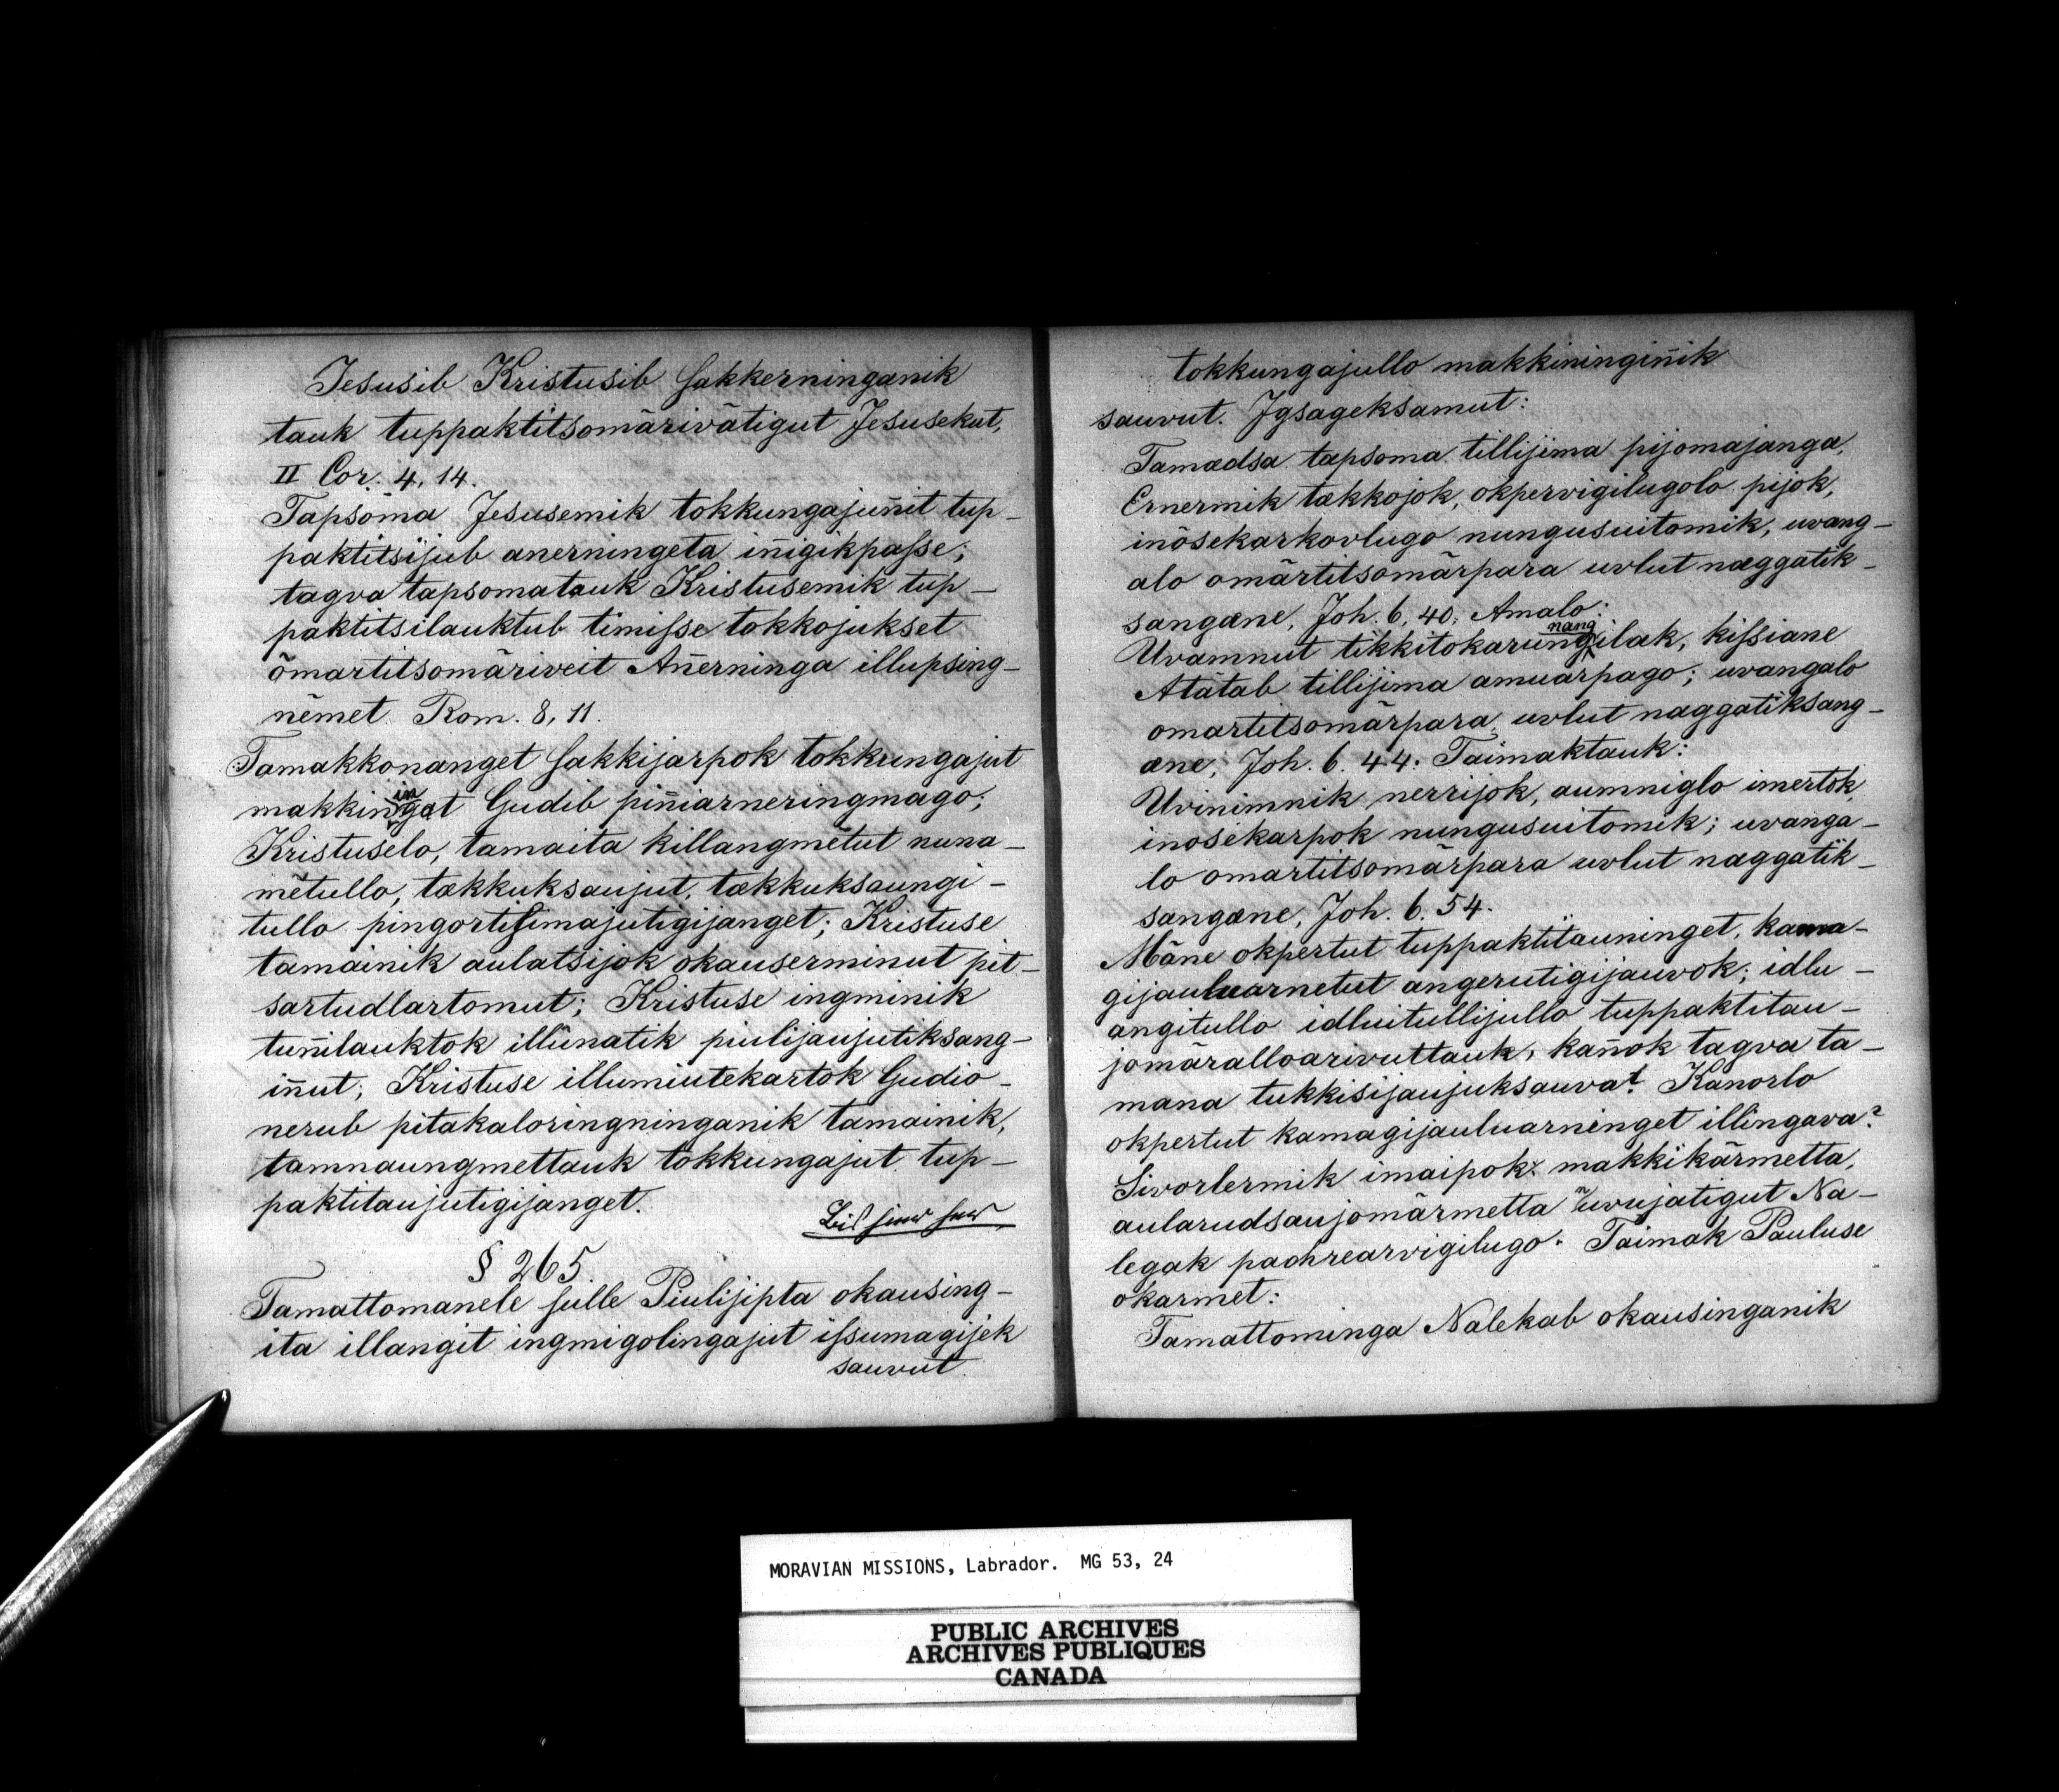 Jesusib Kristusib sakkerninganik
tauk tuppaktitsomãrivãtigut Jesusekut,
II Cor. 4, 14.
Tapsoma Jesusemik tokkungajun̄it tup-
paktitsijub anerningeta in̄igikpasse;
tagva tapsomatauk Kristusemik tup-
paktitsilauktub timisse tokkojukset
õmartitsomãriveit An̄erninga illupsing-
nẽmet. Rom. 8, 11.
Tamakkonanget sakkijarpok tokkungajut
makkiningat Gudib pin̄iarneringmago;
Kristuselo, tamaita killangmẽtut nuna-
mẽtullo, tækkuksaujut, tækkuksaungi-
tullo pingortisimajutigijanget; Kristuse
tamainik aulatsijok okauserminut pit-
sartudlartomut; Kristuse ingminik
tun̄ilauktok illũnatik piulijaujutiksang-
in̄ut; Kristuse illumiutekartok Gudio-
nerub pitakaloringninganik tamainik,
tamnaungmettauk tokkungajut tup-
paktitaujutigijanget.
§ 265.
Tamattomanele sulle Piulijipta okausing-
ita illangit ingmigolingajut issumagijek
sauvut
tokkungajullo makkiningin̄ik
sauvut. Igsageksamut:
Tamadsa tapsoma tillijima pijomajanga,
Ernermik tækkojok, okpervigilugolo pijok,
inõsekarkovlugo nungusuitomik, uvang-
alo omãrtitsomãrpara uvlut næggatik-
sangæne, Joh. 6, 40. Amalo:
nang
Uvamnut tikkitokarungilak, kissiane
Atãtab tillijima amuarpago; uvangalo
omartitsomãrpara uvlut naggatiksang-
æne, Joh. 6. 44. Taimaktauk:
Uvinimnik nerrijok, aumniglo imertok,
inosekarpok nungusuitomik; uvanga-
lo omartitsomãrpara uvlut næggatik-
sangæne, Joh. 6. 54.
Mãne okpertut tuppaktitauninget, kama-
gijauluarnetut angerutigijauvok; idlu-
angitullo idluitullijullo tuppaktitau-
jomãralloarivuttauk, kan̄ok tagva ta-
mana tukkisijaujuksauva? Kanorlo
okpertut kamagijauluarninget illingava?
Sivorlermik imaipok: makkikãrmetta,
aularudsaujomãrmetta uvujatigut Na-
legak paohrearvigilugo. Taimak Pauluse
okarmet:
Tamattominga Nalekab okausinganik
MORAVIAN MISSIONS, Labrador. MG 53, 24
PUBLIC ARCHIVES
ARCHIVES PUBLIQUES
CANADA